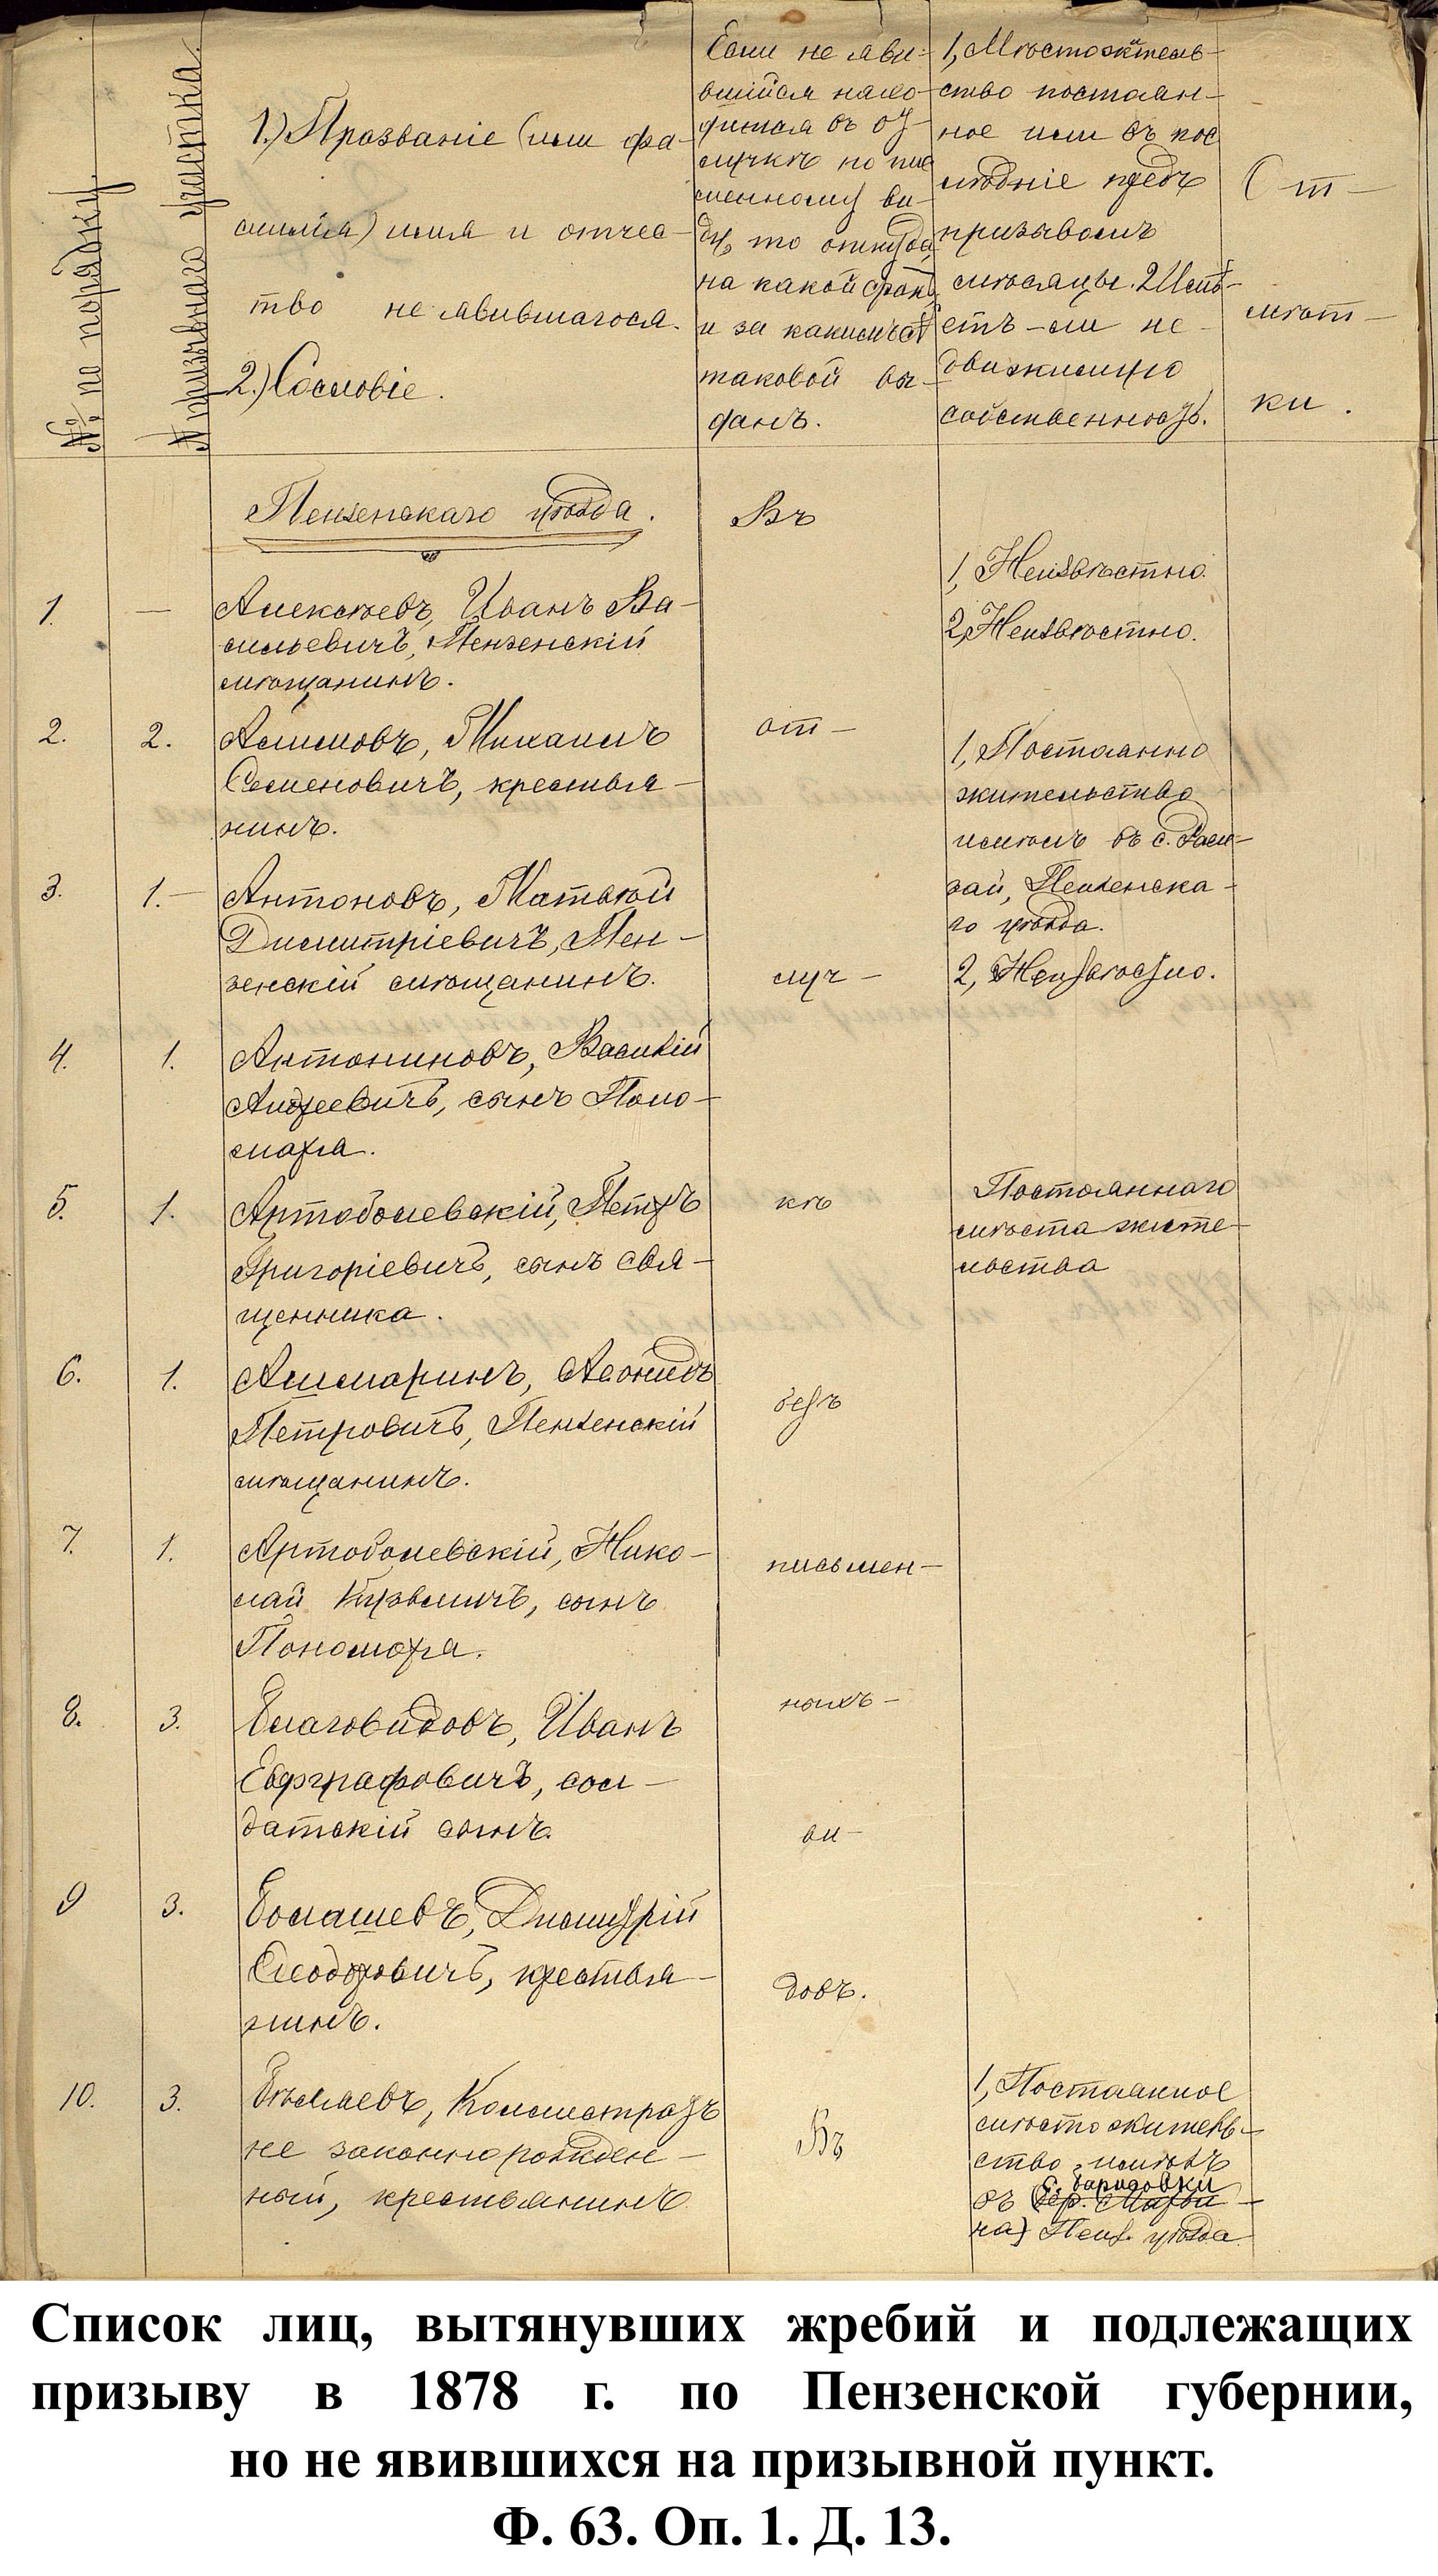 № по порядку.
№ призывнаго участка.
1.) Прозваніе (или фа-
милія) имя и отчес-
тво не явившагося.
2.) Сословіе.
Если не яви-
вшійся нахо-
дится въ от
лучкѣ по пис
менному ви-
ду, то откуда,
на какой срокъ
и за какимъ №
таковой вы-
данъ.
1, Мѣстожитель-
ство постоян-
ное или въ пос
лѣдніе предъ
призывомъ
мѣсяцы. 2 Имѣ-
етъ-ли не-
движимую
собственность.
От-
мѣт-
ки.
Пензенскаго уѣзда.
Въ
1. — Алексѣевъ, Иванъ Ва-
сильевичъ, Пензенскій
мѣщанинъ.
1, Неизвѣстно.
2, Неизвѣстно.
2. 2. Алимовъ, Михаилъ
Семеновичъ, крестья-
нинъ.
от-
1, Постоянно
жительство
имѣлъ въ с. Рам-
зай, Пензенска-
го уѣзда.
2, Неизвѣстно.
3. 1.- Антоновъ, Матвѣй
Димитріевичъ, Пен-
зенскій мѣщанинъ.
луч-
4. 1. Антониновъ, Василій
Андреевичъ, сынъ Поно-
маря.
5. 1. Артоболевскій, Петръ
Григоріевичъ, сынъ свя-
щенника.
кѣ
Постояннаго
мѣста жите-
льства
6. 1. Ашмаринъ, Леонидъ
Петровичъ, Пензенскій
мѣщанинъ.
безъ
7. 1. Артоболевскій, Нико-
лай Кузьмичъ, сынъ
Пономаря.
письмен-
8. 3. Благовидовъ, Иванъ
Евграфовичъ, сол-
датскій сынъ.
ныхъ-
ви-
9 3. Болашевъ, Димитрій
Ѳеодоровичъ, крестья-
нинъ.
довъ.
10. 3. Бѣляевъ, Каллистратъ
не законнорожден-
ный, крестьянинъ
Въ
1, Постоянное
мѣсто житель-
ство, имѣлъ
с.
въ (дер.
на) Пенз. уѣзда
Список лиц, вытянувших жребий и подлежащих
призыву в 1878 г. по Пензенской губернии,
но не явившихся на призывной пункт.
Ф. 63. Оп. 1. Д. 13.